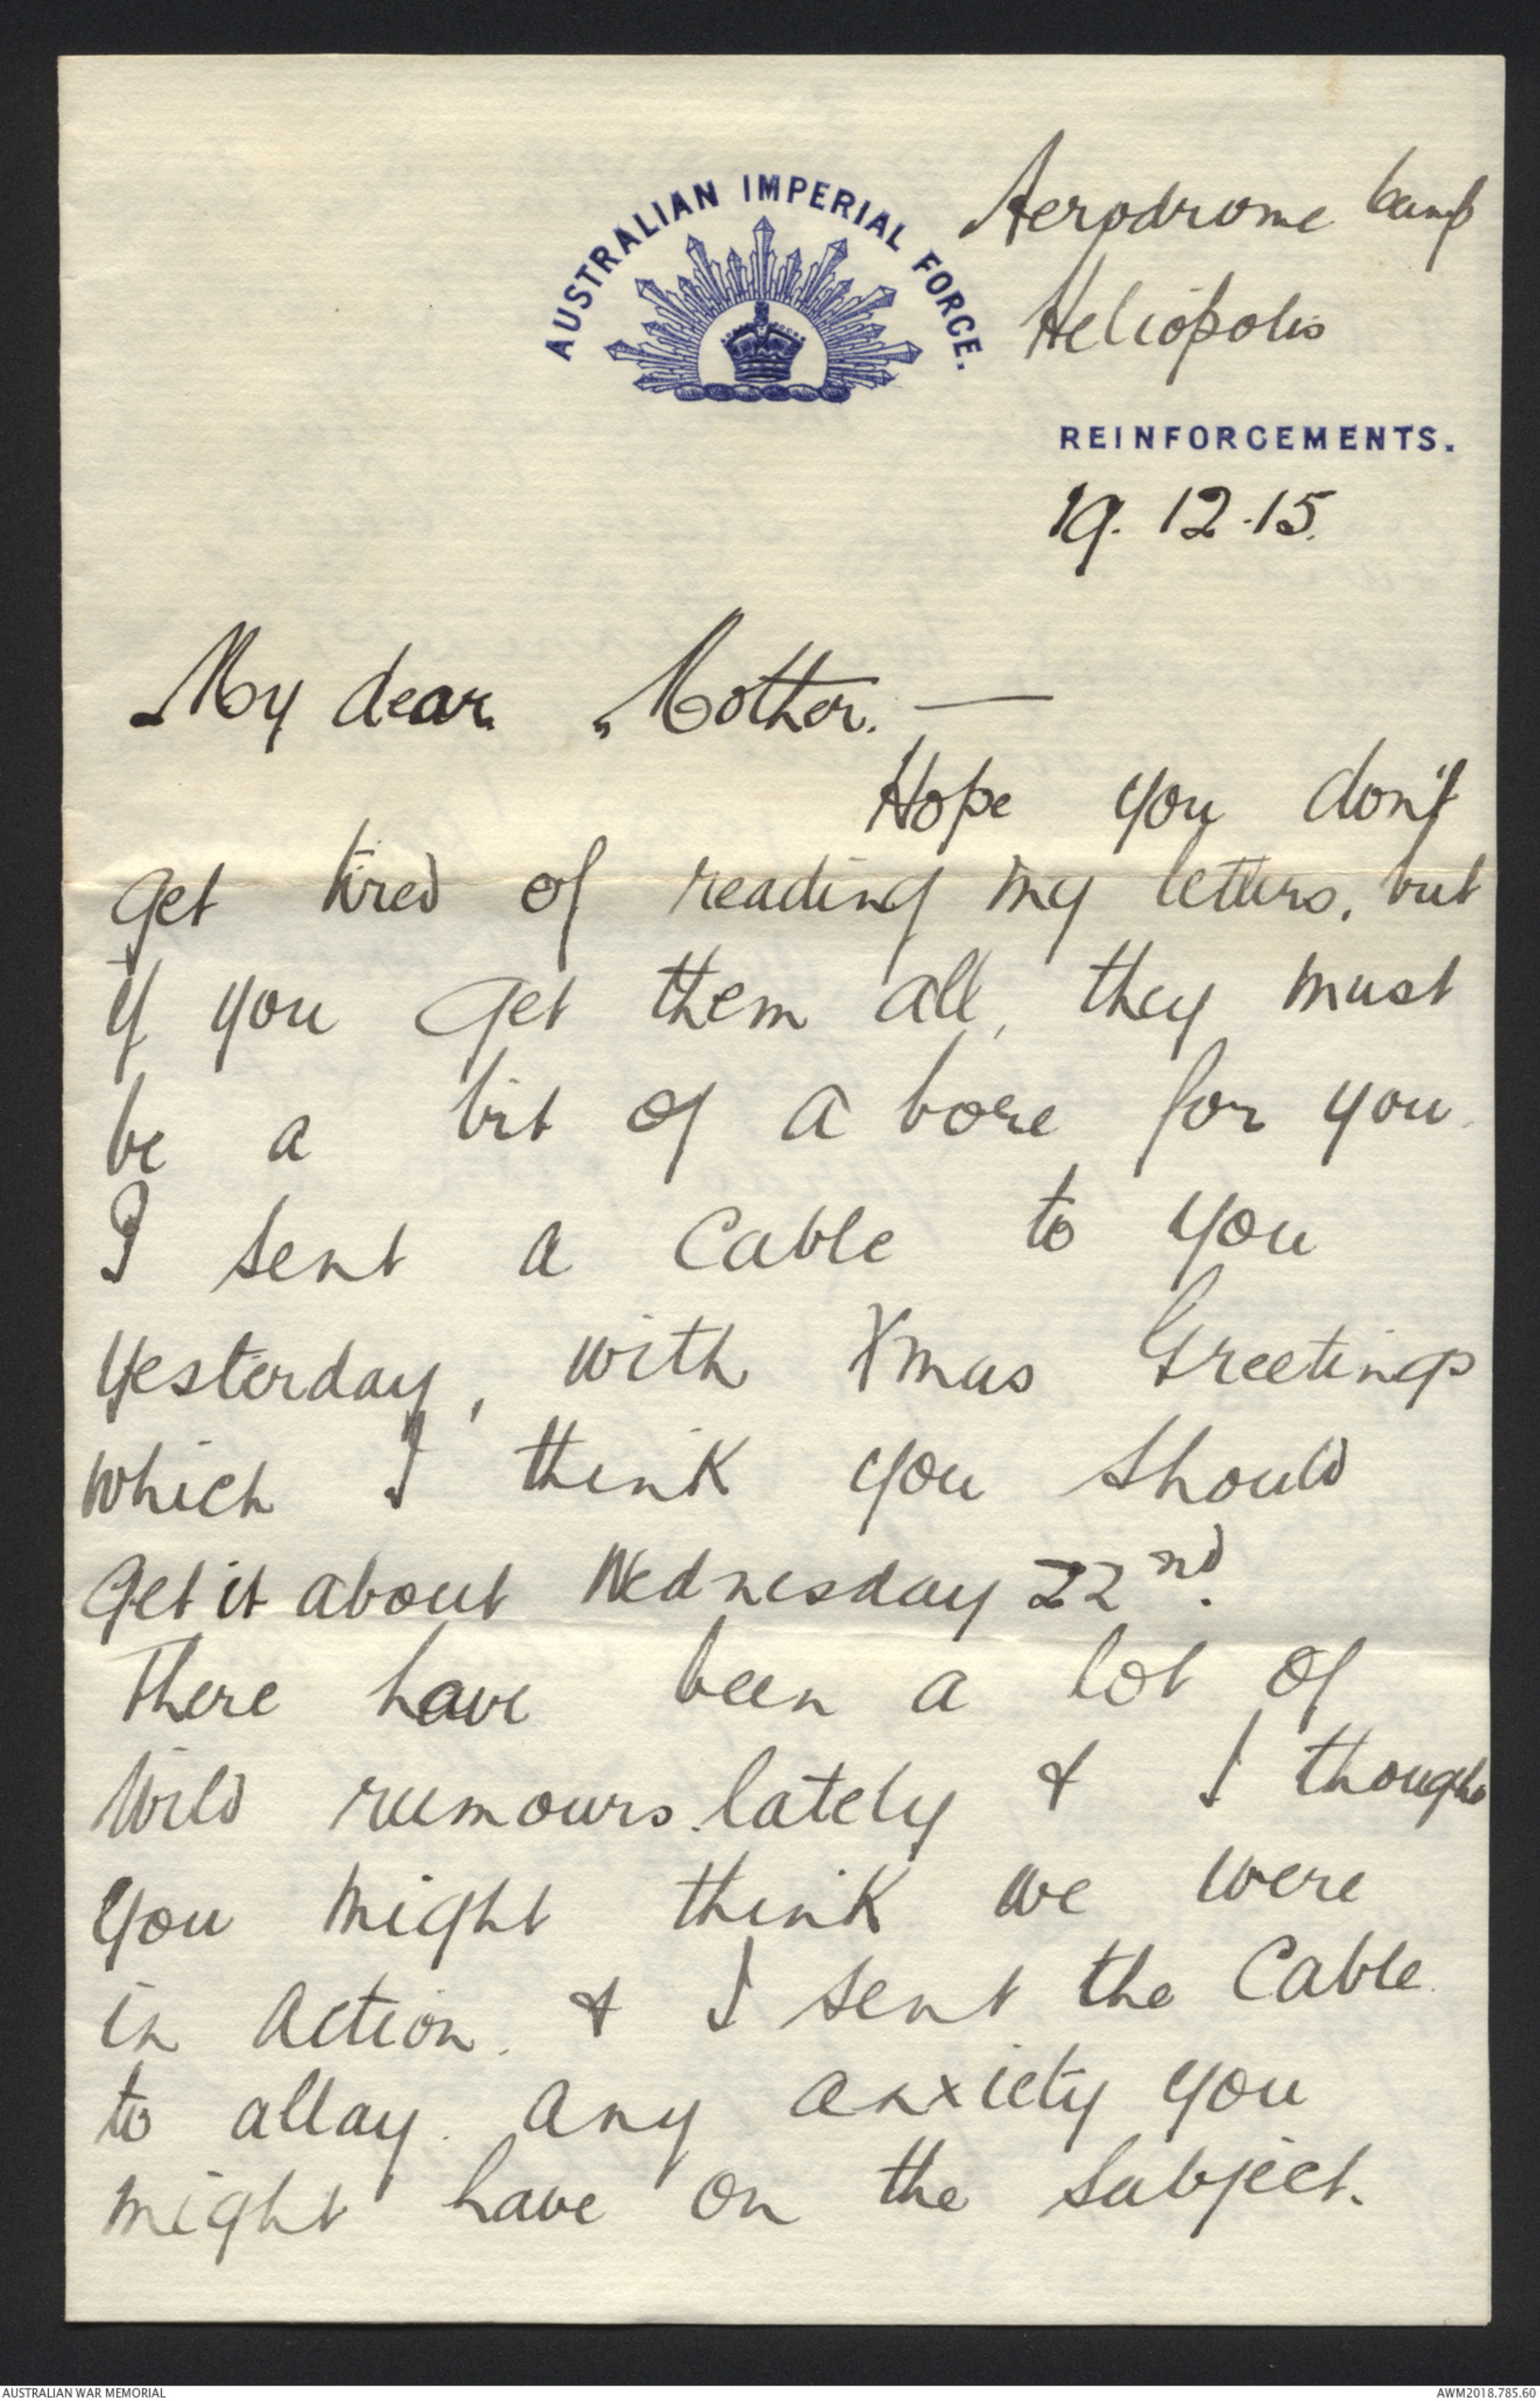 Aerodrome Camp
AUSTRALIAN IMPERIAL FORCE.
Heliopolis
REINFORCEMENTS.
19.12.15.
My dear Mother. —
Hope you don't
get tired of reading my letters, but
if you get them all, they must
be a bit of a bore for you.
I sent a Cable to you
yesterday, with Xmas Greetings
which I think you should
get it about Wednesday 22nd.
There have been a lot of
wild rumours lately & I thought
you might think we were
in action. & I sent the Cable
to allay any anxiety you
might have on the subject.
AUSTRALIAN WAR MEMORIAL
AWM2018.785.60